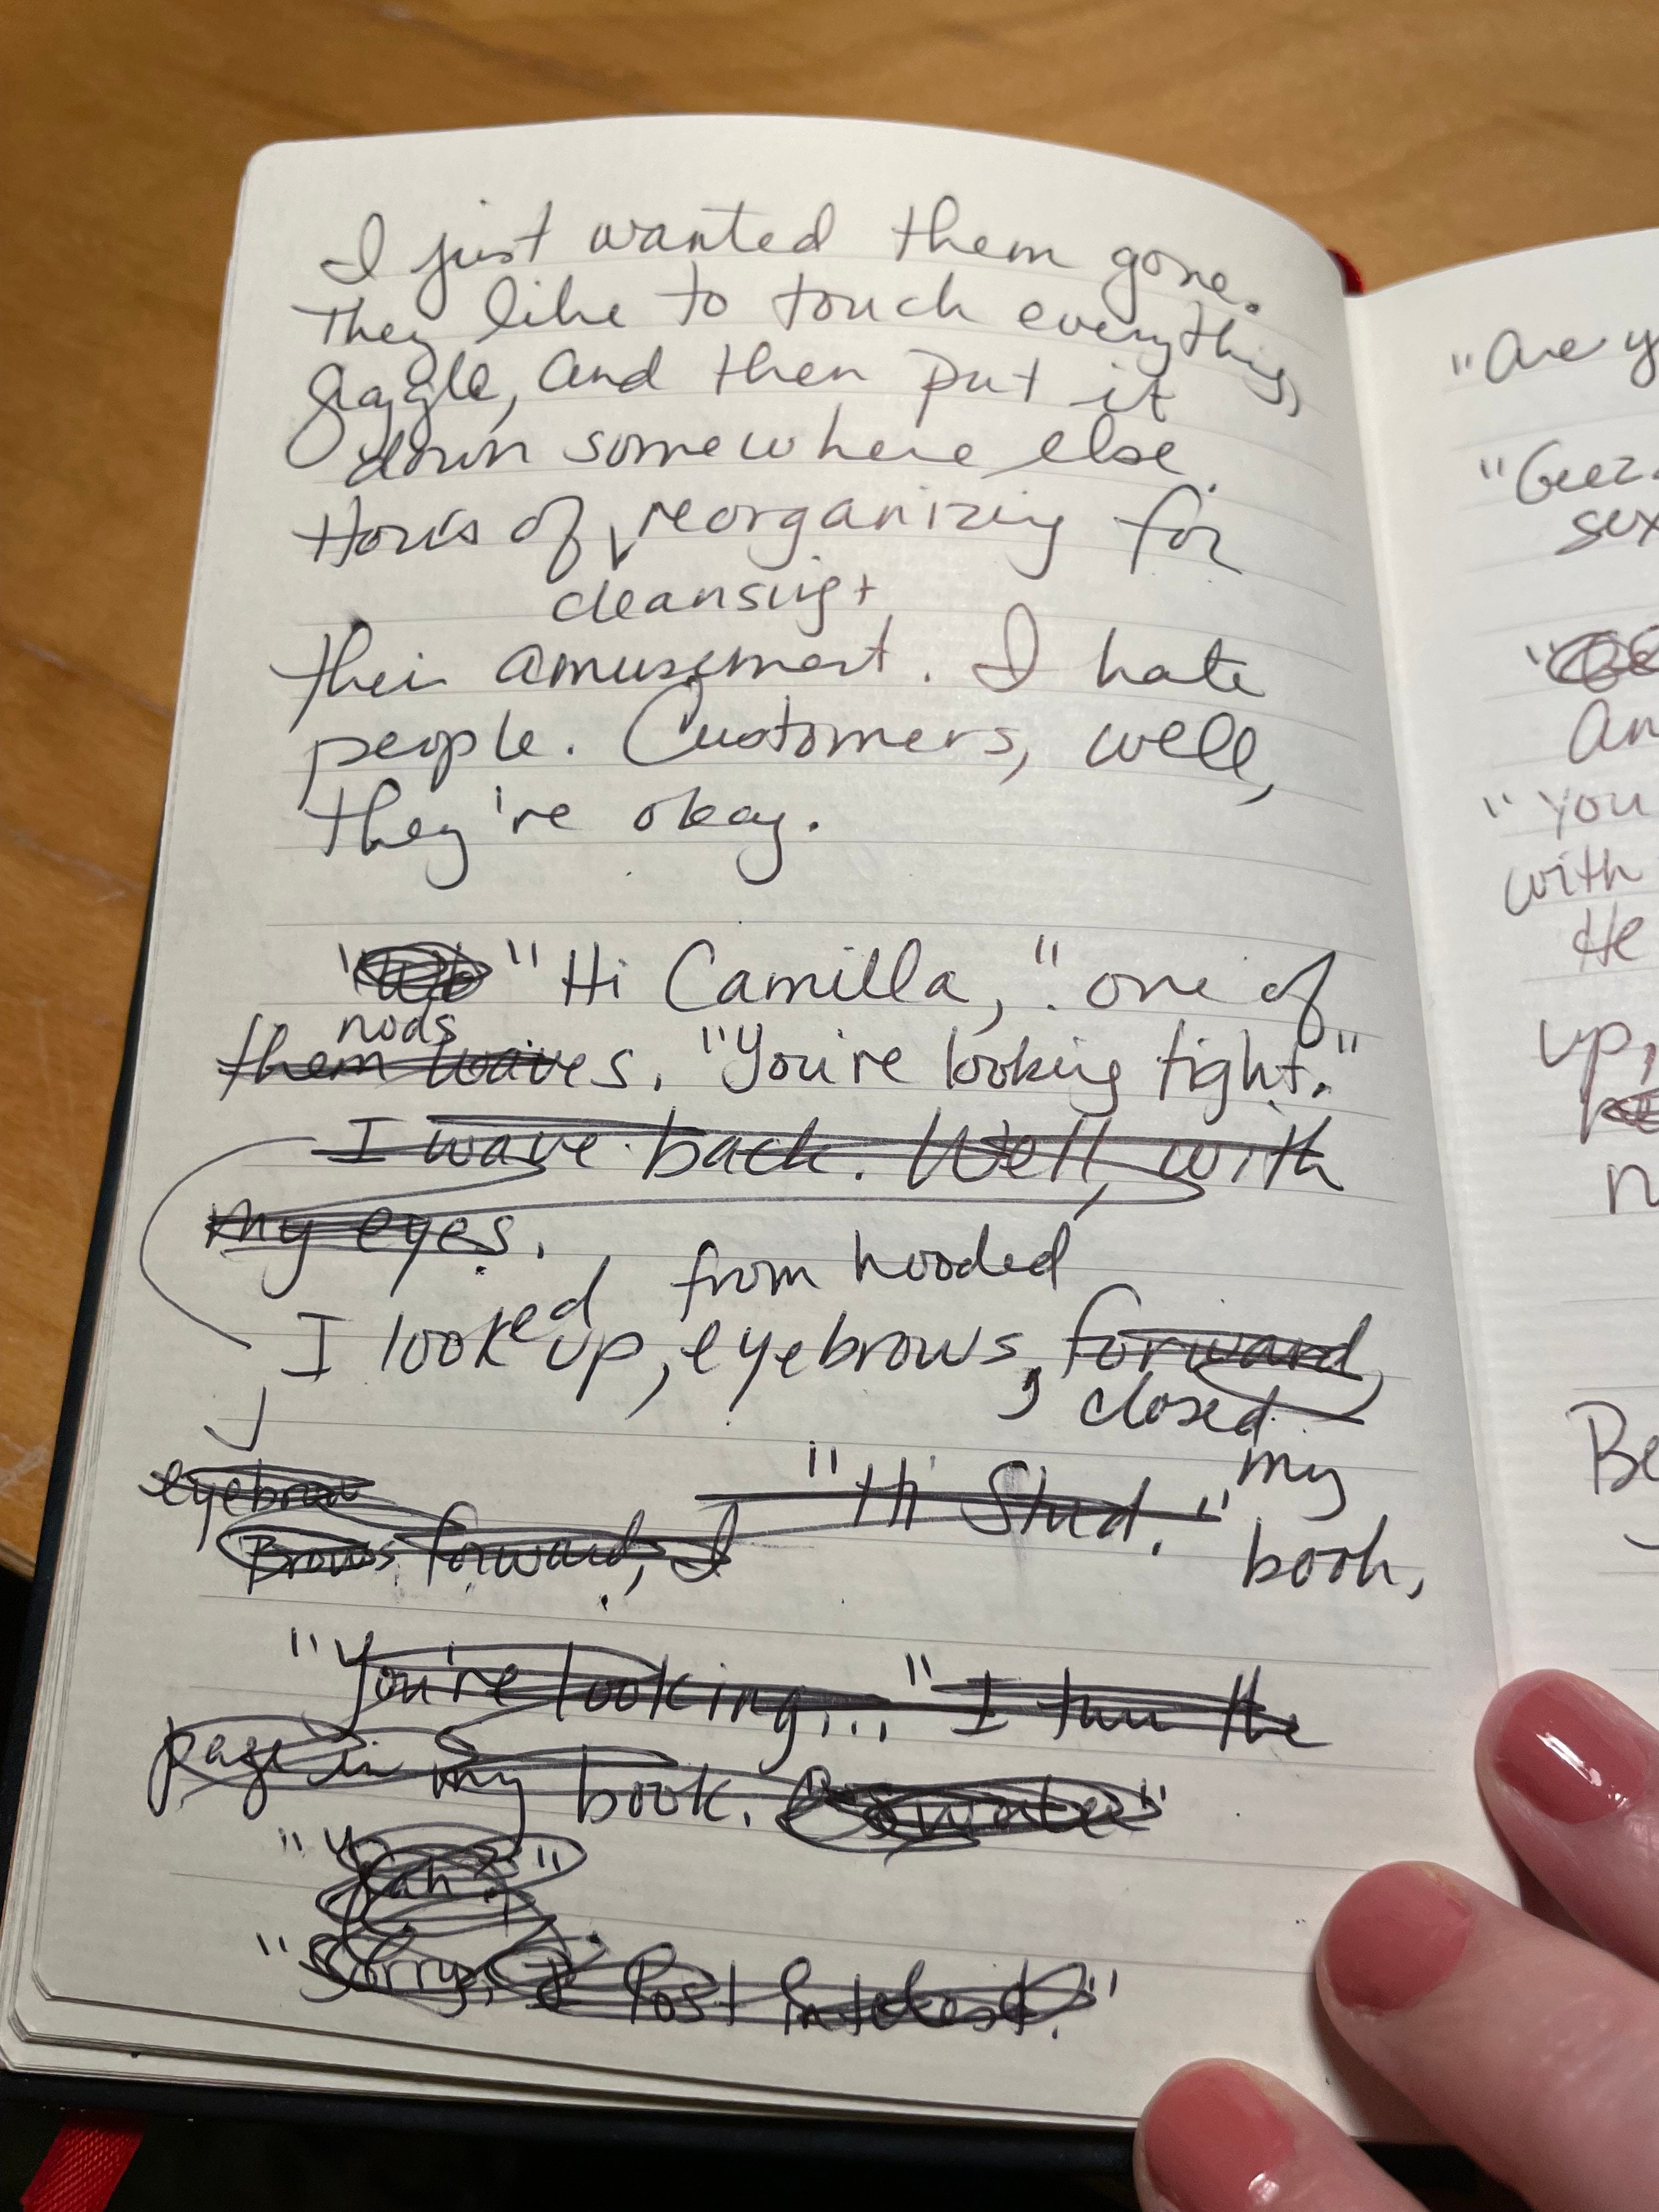 I just wanted them gone.
They like to touch everything,
giggle, and then put it
down somewhere else.
Hours of reorganizing for
cleansing +
their amusement. I hate
people. Customers, well,
they're okay.
"Hi Camilla,". one of
nods
them waves. "You're looking tight."
I wave back. Well, with
my eyes.
from hooded
I looked up, eyebrows, forward,
, closed
my
eyebrow
"Hi Stud."
Brows forward, I
book,
"You're looking..." I turn the
page in my book.
"Yeah?"
"Sorry, I lost interest."
"Are y
"Geez.
sex
An
"You
with
He
up,
Be